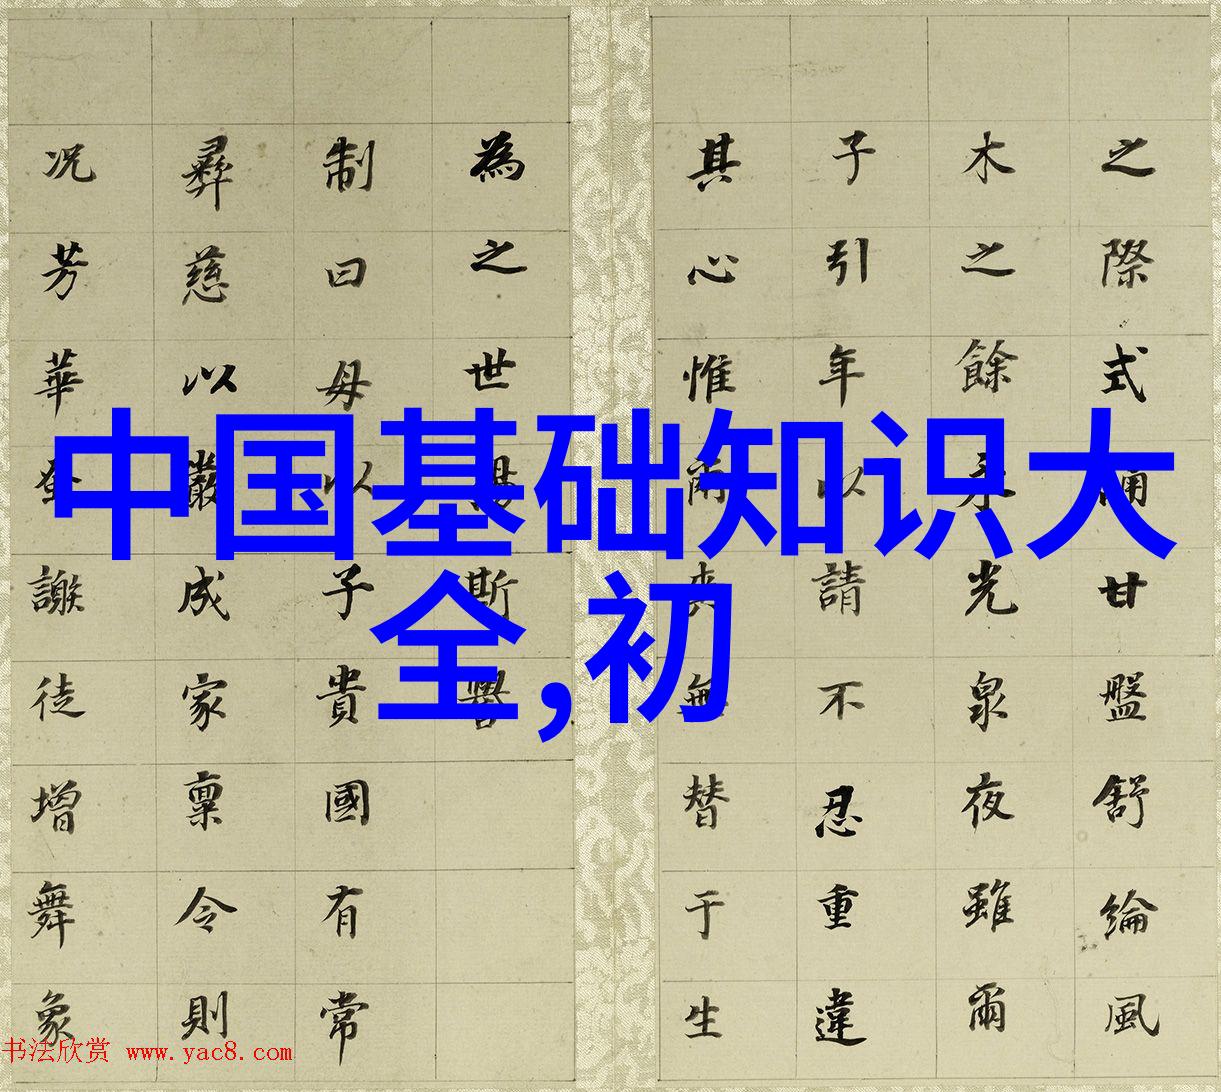 中国基础知识大
全,初
之際式甘盤舒綸風
木之餘光泉夜雖爾
子引年以請不忍重違
其心惟無替于生
為之世斯譽
制曰母以子貴國有常
彝慈以嚴成家稟令則
况芳華謝徒增舞象
书法欣赏 www.yac8.com